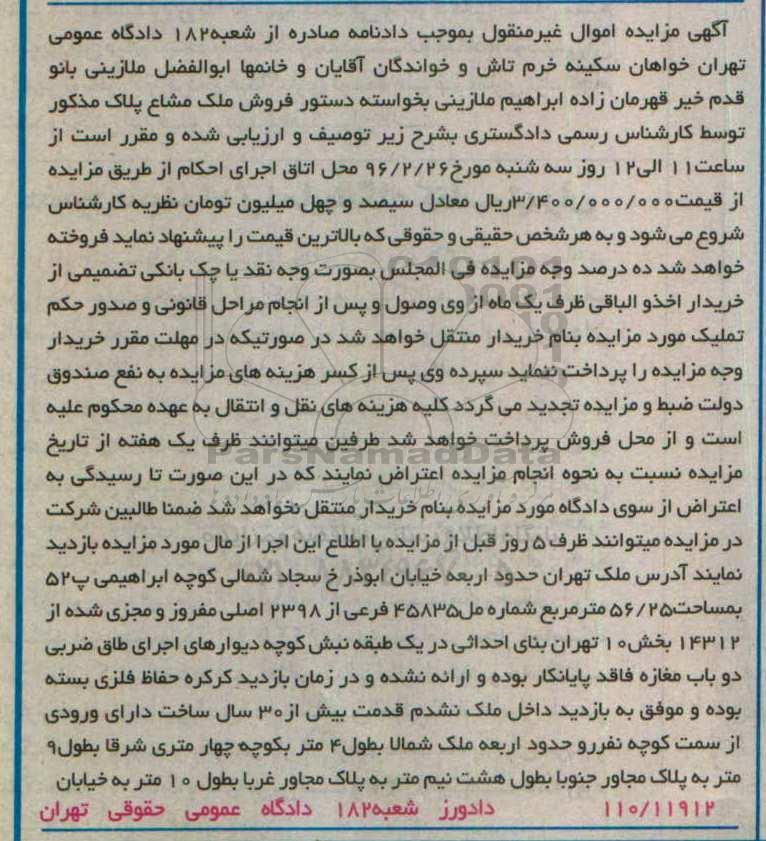 آگهی مزایده اموال غیرمنقول بموجب دادنامه صادره از شعبه۱۸۲ دادگاه عمومی
تهران خواهان سکینه خرم تاش و خواندگان آقایان و خانمها ابوالفضل ملازینی بانو
قدم خیر قهرمان زاده ابراهیم ملازینی بخواسته دستور فروش ملک مشاع پلاک مذکور
توسط کارشناس رسمی دادگستری بشرح زیر توصیف و ارزیابی شده و مقرر است از
ساعت۱۱ الی۱۲ روز سه شنبه مورخ۹۶/۲/۲۶ محل اتاق اجرای احکام از طریق مزایده
از قیمت۳/۴۰۰/۰۰۰/۰۰۰ریال معادل سیصد و چهل میلیون تومان نظریه کارشناس
شروع می شود و به هرشخص حقیقی و حقوقی که بالاترین قیمت را پیشنهاد نماید فروخته
خواهد شد ده درصد وجه مزایده فی المجلس بصورت وجه نقد یا چک بانکی تضمیمی از
خریدار اخذو الباقی ظرف یک ماه از وی وصول و پس از انجام مراحل قانونی و صدور حکم
تملیک مورد مزایده بنام خریدار منتقل خواهد شد در صورتیکه در مهلت مقرر خریدار
وجه مزایده را پرداخت ننماید سپرده وی پس از کسر هزینه های مزایده به نفع صندوق
دولت ضبط و مزایده تجدید می گردد کلیه هزینه های نقل و انتقال به عهده محکوم علیه
است و از محل فروش پرداخت خواهد شد طرفین میتوانند ظرف یک هفته از تاریخ
ParsNamadData
مزایده نسبت به نحوه انجام مزایده اعتراض نمایند که در این صورت تا رسیدگی به
اعتراض از سوی دادگاه مورد مزایده بنام خریدار منتقل نخواهد شد ضمنا طالبین شرکت
در مزایده میتوانند ظرف ۵ روز قبل از مزایده با اطلاع این اجرا از مال مورد مزایده بازدید
نمایند آدرس ملک تهران حدود اربعه خیابان ابوذر خ سجاد شمالی کوچه ابراهیمی پ۵۲
بمساحت۵۶/۲۵ مترمربع شماره مل۴۵۸۳۵ فرعی از ۲۳۹۸ اصلی مفروز و مجزی شده از
۱۴۳۱۲ بخش۱۰ تهران بنای احداثی در یک طبقه نبش کوچه دیوارهای اجرای طاق ضربی
دو باب مغازه فاقد پایانکار بوده و ارائه نشده و در زمان بازدید کرکره حفاظ فلزی بسته
بوده و موفق به بازدید داخل ملک نشدم قدمت بیش از۳۰ سال ساخت دارای ورودی
از سمت کوچه نفررو حدود اربعه ملک شمالا بطول۴ متر بکوچه چهار متری شرقا بطول۹
متر به پلاک مجاور جنوبا بطول هشت نیم متر به پلاک مجاور غربا بطول ۱۰ متر به خیابان
۱۱۰/۱۱۹۱۲ دادورز شعبه۱۸۲ دادگاه عمومی حقوقی تهران